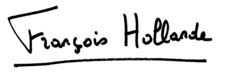 François Hollande